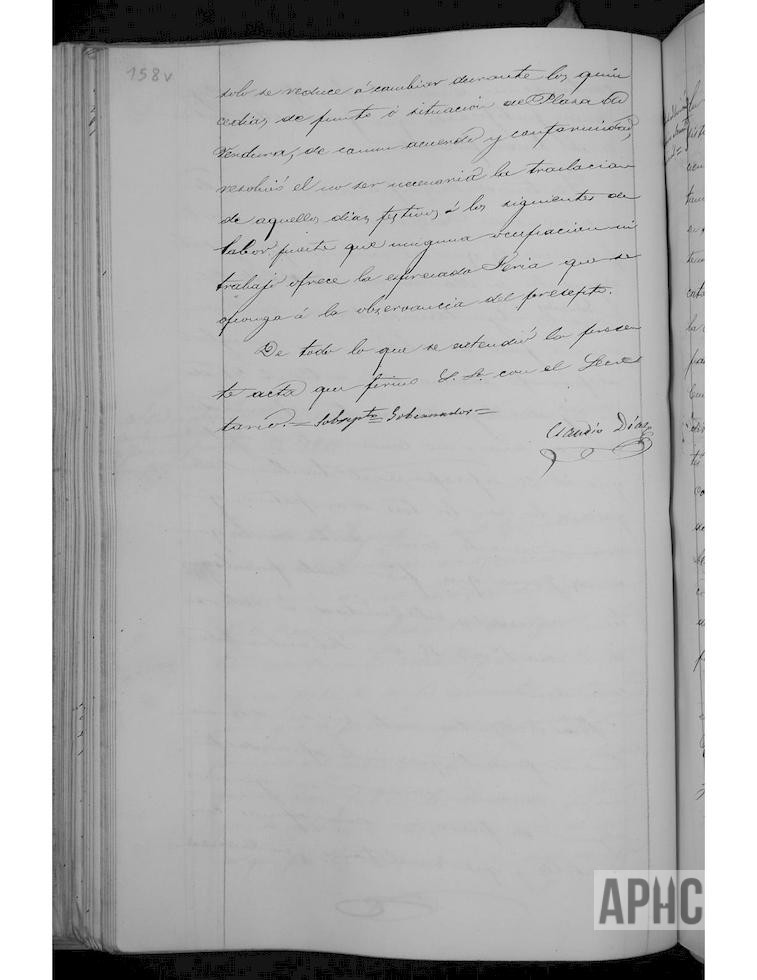 158v
solo se reduce á cambiar durante los quin
ce dias de punto ó situación de Plaza la
Verdura, de comun acuerdo y conformidad,
resolvió el no ser necesaria la traslacion
de aquellos dias festivos á los siguientes de
labor puesto que ninguna ocupacion ni
trabajo ofrece la espresada Feria que se
oponga á la observancia del precepto.
De todo lo que se estendió la presen
te acta que firmó S. S. con el Secre
tario = Sobrepto = Gobernador =
Claudio Dias
APHC